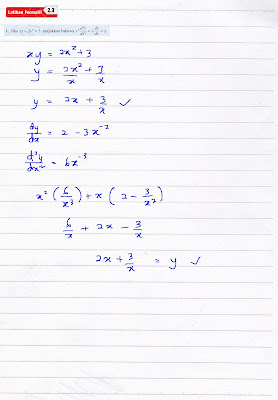 Latihan Formatif 2.3
1. Jika xy = 2x² + 3, tunjukkan bahawa x² d²y/dx² + x dy/dx = y.
xy = 2x² + 3
y = 2x²/x + 3/x
y = 2x + 3/x ✓
dy/dx = 2 - 3x⁻²
d²y/dx² = 6x⁻³
x² (6/x³) + x (2 - 3/x²)
6/x + 2x - 3/x
2x + 3/x = y ✓